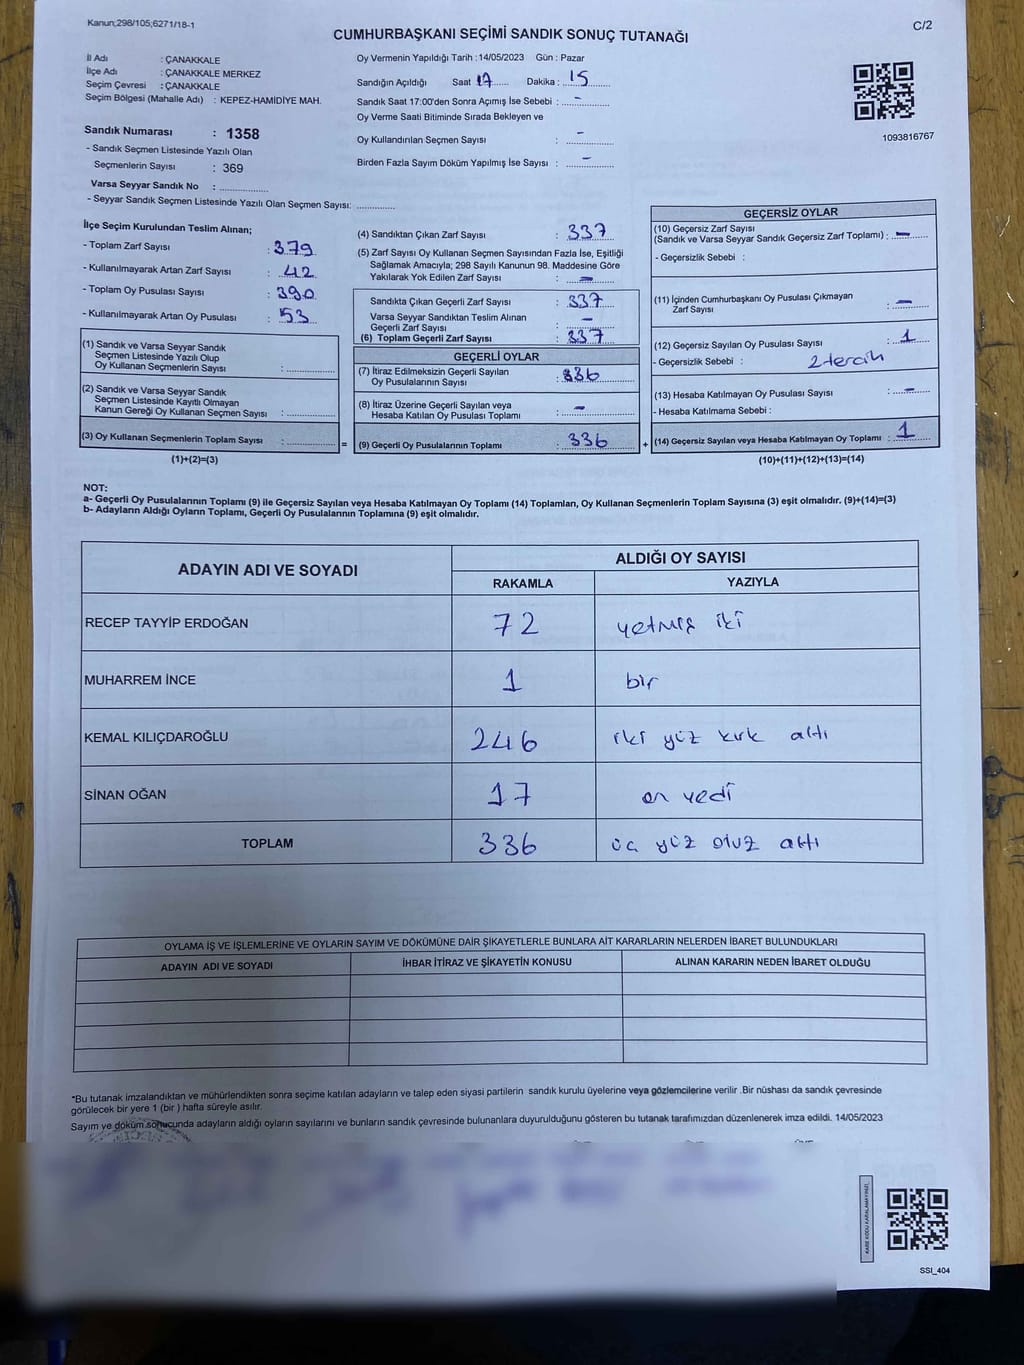 Kanun;298/105;6271/18-1
C/2
CUMHURBAŞKANI SEÇİMİ SANDIK SONUÇ TUTANAĞI
İl Adı : ÇANAKKALE
İlçe Adı : ÇANAKKALE MERKEZ
Seçim Çevresi : ÇANAKKALE
Seçim Bölgesi (Mahalle Adı) : KEPEZ-HAMİDİYE MAH.
Sandık Numarası : 1358
- Sandık Seçmen Listesinde Yazılı Olan
Seçmenlerin Sayısı : 369
Varsa Seyyar Sandık No : ................
- Seyyar Sandık Seçmen Listesinde Yazılı Olan Seçmen Sayısı: .............
Oy Vermenin Yapıldığı Tarih : 14/05/2023 Gün : Pazar
Sandığın Açıldığı Saat 17 Dakika : 15
Sandık Saat 17:00'den Sonra Açımış İse Sebebi : -
Oy Verme Saati Bitiminde Sırada Bekleyen ve
Oy Kullandırılan Seçmen Sayısı : -
Birden Fazla Sayım Döküm Yapılmış İse Sayısı : -
1093816767
İlçe Seçim Kurulundan Teslim Alınan;
- Toplam Zarf Sayısı : 379
- Kullanılmayarak Artan Zarf Sayısı : 42
- Toplam Oy Pusulası Sayısı : 390
- Kullanılmayarak Artan Oy Pusulası : 53
(1) Sandık ve Varsa Seyyar Sandık
Seçmen Listesinde Yazılı Olup
Oy Kullanan Seçmenlerin Sayısı : .............
(2) Sandık ve Varsa Seyyar Sandık
Seçmen Listesinde Kayıtlı Olmayan
Kanun Gereği Oy Kullanan Seçmen Sayısı : .............
(3) Oy Kullanan Seçmenlerin Toplam Sayısı : .............
(1)+(2)=(3)
(4) Sandıktan Çıkan Zarf Sayısı : 337
(5) Zarf Sayısı Oy Kullanan Seçmen Sayısından Fazla İse, Eşitliği
Sağlamak Amacıyla; 298 Sayılı Kanunun 98. Maddesine Göre
Yakılarak Yok Edilen Zarf Sayısı : -
Sandıkta Çıkan Geçerli Zarf Sayısı : 337
Varsa Seyyar Sandıktan Teslim Alınan
Geçerli Zarf Sayısı : -
(6) Toplam Geçerli Zarf Sayısı : 337
GEÇERLİ OYLAR
(7) İtiraz Edilmeksizin Geçerli Sayılan
Oy Pusulalarının Sayısı : 336
(8) İtiraz Üzerine Geçerli Sayılan veya
Hesaba Katılan Oy Pusulası Toplamı : -
= (9) Geçerli Oy Pusulalarının Toplamı : 336
GEÇERSİZ OYLAR
(10) Geçersiz Zarf Sayısı
(Sandık ve Varsa Seyyar Sandık Geçersiz Zarf Toplamı) : -
- Geçersizlik Sebebi :
(11) İçinden Cumhurbaşkanı Oy Pusulası Çıkmayan
Zarf Sayısı : -
(12) Geçersiz Sayılan Oy Pusulası Sayısı : 1
- Geçersizlik Sebebi : 2 tercih
(13) Hesaba Katılmayan Oy Pusulası Sayısı : -
- Hesaba Katılmama Sebebi :
+ (14) Geçersiz Sayılan veya Hesaba Katılmayan Oy Toplamı : 1
(10)+(11)+(12)+(13)=(14)
NOT:
a- Geçerli Oy Pusulalarının Toplamı (9) ile Geçersiz Sayılan veya Hesaba Katılmayan Oy Toplamı (14) Toplamları, Oy Kullanan Seçmenlerin Toplam Sayısına (3) eşit olmalıdır. (9)+(14)=(3)
b- Adayların Aldığı Oyların Toplamı, Geçerli Oy Pusulalarının Toplamına (9) eşit olmalıdır.
ADAYIN ADI VE SOYADI
ALDIĞI OY SAYISI
RAKAMLA YAZIYLA
RECEP TAYYİP ERDOĞAN 72 yetmiş iki
MUHARREM İNCE 1 bir
KEMAL KILIÇDAROĞLU 246 iki yüz kırk altı
SİNAN OĞAN 17 on yedi
TOPLAM 336 üç yüz otuz altı
OYLAMA İŞ VE İŞLEMLERİNE VE OYLARIN SAYIM VE DÖKÜMÜNE DAİR ŞİKAYETLERLE BUNLARA AİT KARARLARIN NELERDEN İBARET BULUNDUKLARI
ADAYIN ADI VE SOYADI İHBAR İTİRAZ VE ŞİKAYETİN KONUSU ALINAN KARARIN NEDEN İBARET OLDUĞU
*Bu tutanak imzalandıktan ve mühürlendikten sonra seçime katılan adayların ve talep eden siyasi partilerin sandık kurulu üyelerine veya gözlemcilerine verilir .Bir nüshası da sandık çevresinde
görülecek bir yere 1 (bir ) hafta süreyle asılır.
Sayım ve döküm sonucunda adayların aldığı oyların sayılarını ve bunların sandık çevresinde bulunanlara duyurulduğunu gösteren bu tutanak tarafımızdan düzenlenerek imza edildi. 14/05/2023
KARE KODU KARALAMAYINIZ.
SSİ_404